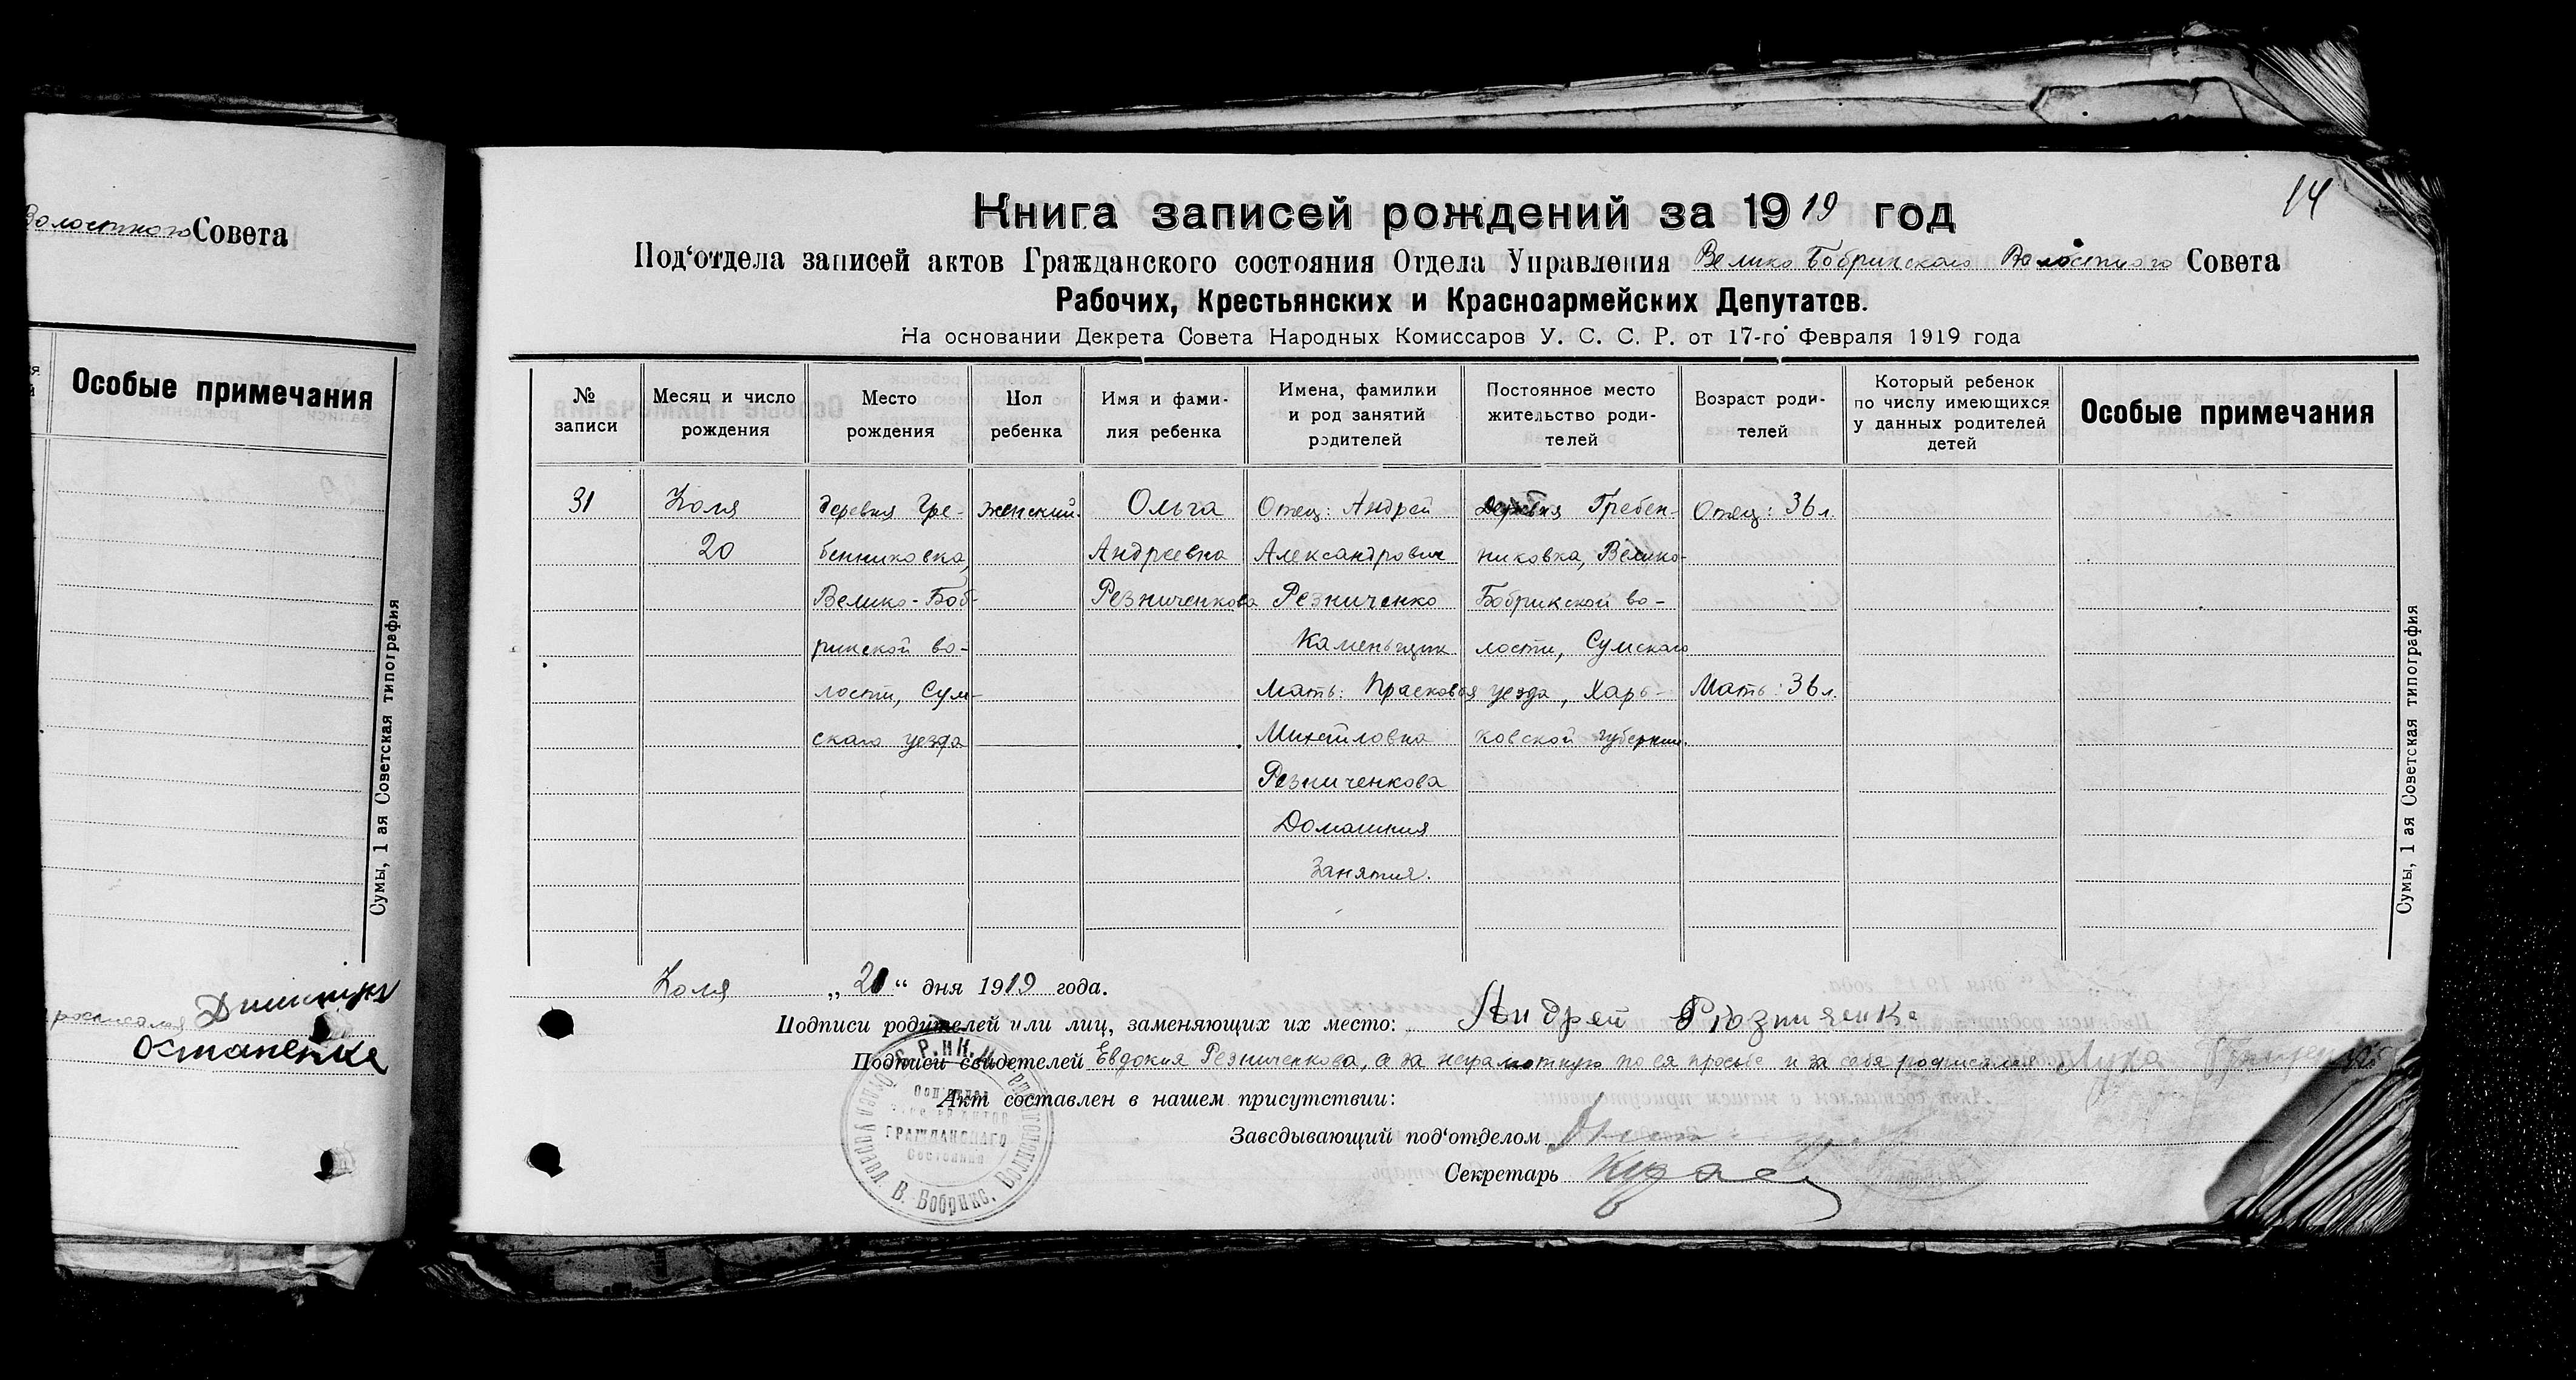 Волостного Совета
Особые примечания
Сумы, 1 ая Советская типография
Остапенко
14
Книга записей рождений за 1919 год
Под‘отдела записей актов Гражданского состояния Отдела Управления Велико Бобрикского Волостного Совета
Рабочих, Крестьянских и Красноармейских Депутатов.
На основании Декрета Совета Народных Комиссаров У. С. С. Р. от 17-го Февраля 1919 года
№ записи
Месяц и число рождения
Место рождения
Пол ребенка
Имя и фами-
лия ребенка
Имена, фамилии
и род занятий
родителей
Постоянное место
жительство роди-
телей
Возраст роди-
телей
Который ребенок
по числу имеющихся
у данных родителей
детей
Особые примечания
31
Юля
20
деревня Гре-
бенниковка,
Велико-Боб-
рикской во-
лости, Сум-
скаго уезда
женский.
Ольга
Андреевна
Резниченкова
Отец: Андрей
Александрович
Резниченко
Каменьщик
Мать: Прасковья
Михайловна
Резниченкова
Домашния
Занятия.
Деревня Гребен-
никовка, Велико-
Бобрикской во-
лости, Сумскаго
уезда, Харь-
ковской губернии.
Отец: 36 л.
Мать: 36 л.
Сумы, 1 ая Советская типография
Юля „21“ дня 1919 года.
Подписи родителей или лиц, заменяющих их место: Андрей
Подписи свидетелей Евдокия Резниченкова, а за неграмотную по ея просьбе и за себя росписался Лука
Акт составлен в нашем присутствии:
Заведывающий под‘отделом
Секретарь
ГРАЖДАНСКАГО
Состояния
В. Бобрикс.